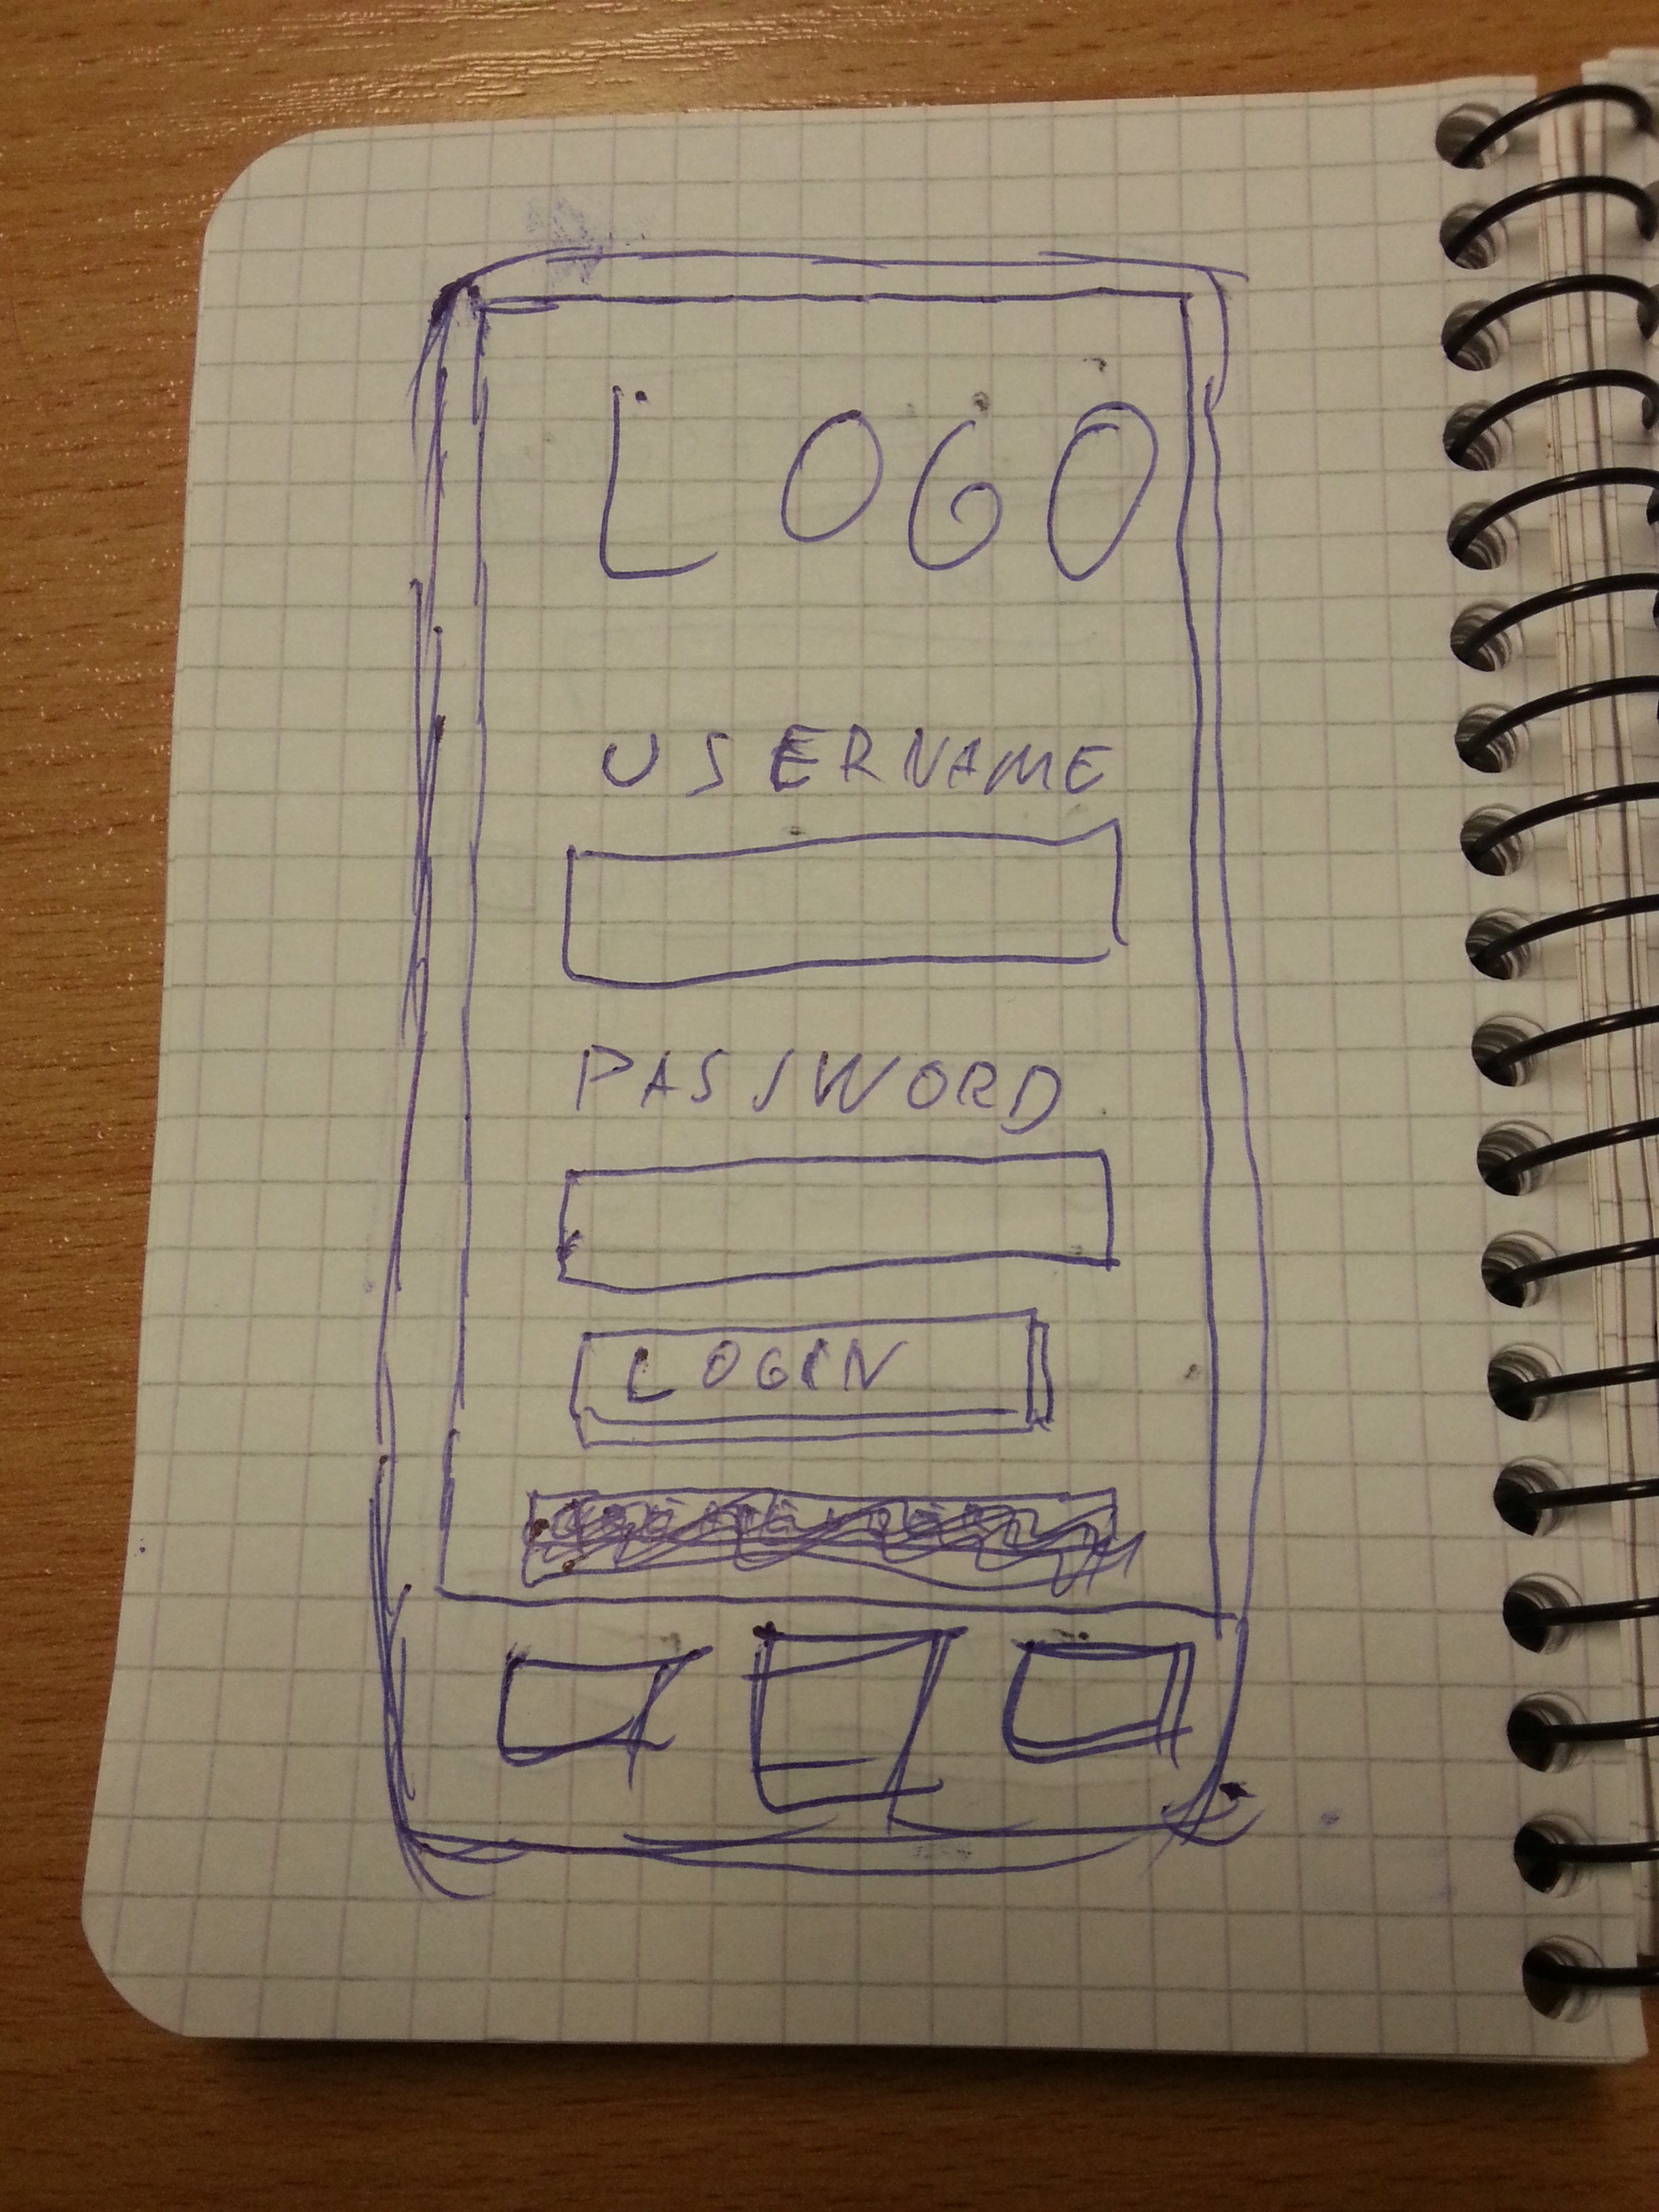 LOGO
USERNAME
PASSWORD
LOGIN